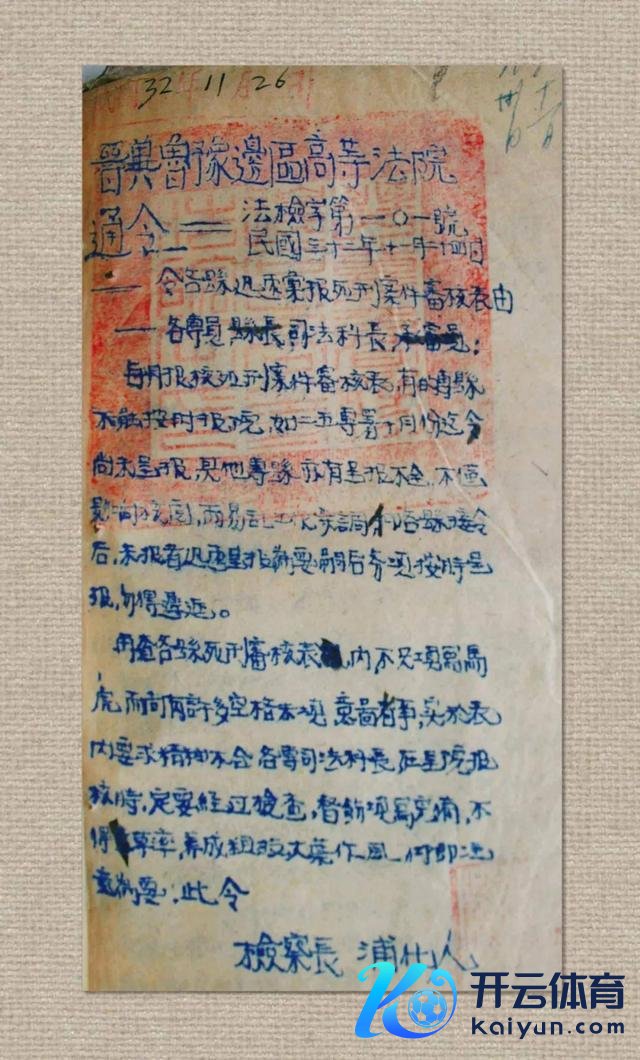 32年11月26
晋冀魯豫邊區高等法院
通令 — 法檢字第一〇一號
民國三十二年十一月十四日
— 令各縣迅速彙报死刑案件審核表由
— 各專員縣長司法科長承審員:
每月报核死刑案件審核表,有的專縣
不能按时报院 如二五專署十月份迄今
尚未呈报,其他專縣亦有呈报不全,不僅
影响 而易 工作 各縣接令
后,未报者迅速呈报為要嗣后务須按時呈
报,勿得遲延。
再查各縣死刑審核表 内不只填寫馬
虎,而尚有許多空格未填 意啚省事,实於表
内要求精神不合 各專司法科長在呈院报
核時,定要経过檢查,督飭填寫完備,不
得草率,养成粗枝大葉作風 仰即注
意為要,此令
檢察長 浦化人
开云体育
kaiyun.com